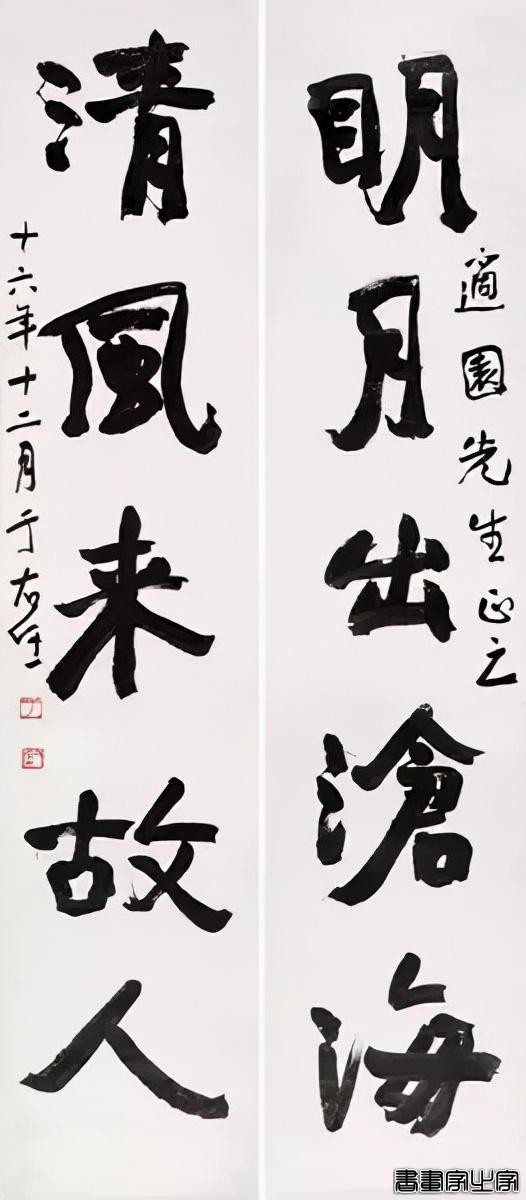 適園先生正之
明月出滄海
清風来故人
十六年十二月于右任
書畫家之家